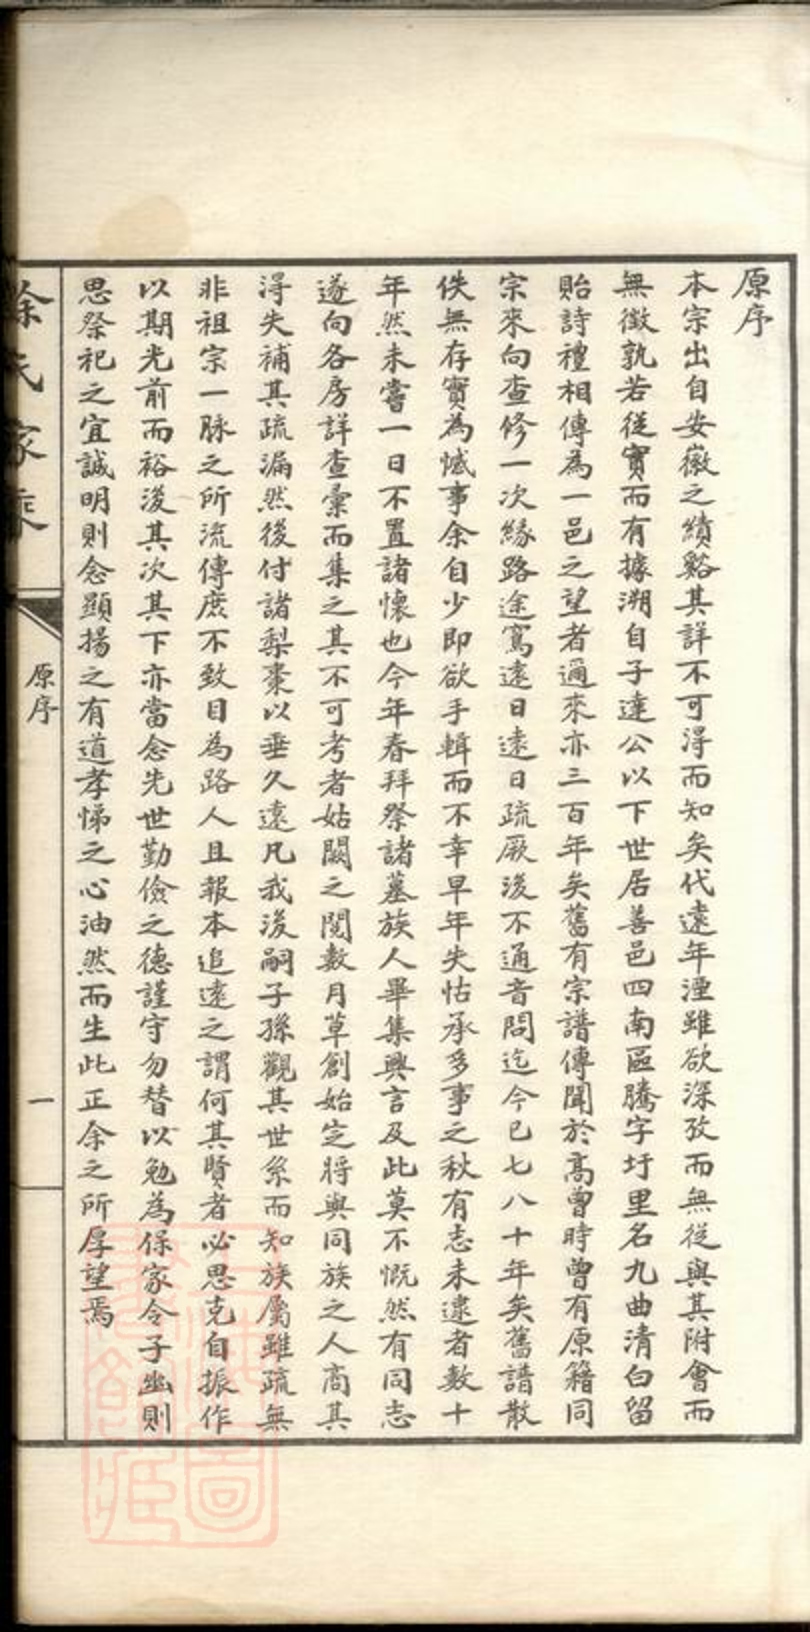 原序
本宗出自安徽之績谿其詳不可淂而知矣代遠年湮雖欲深攷而無從與其附會而
無徵孰若從實而有據溯自子達公以下世居善邑四南區騰字圩里名九曲清白留
貽詩禮相傳為一邑之望者邇來亦三百年矣舊有宗譜傳聞於高曾時曾有原籍同
宗來向查修一次緣路途寫遠日遠日疏厥後不通音問迄今已七八十年矣舊譜散
佚無存實為憾事余自少即欲手輯而不幸早年失怙承多事之秋有志未逮者數十
年然未嘗一日不置諸懷也今年春拜祭諸墓族人畢集興言及此莫不慨然有同志
遂向各房詳查彙而集之其不可考者姑闕之閱數月草創始定將與同族之人商其
淂失補其疏漏然後付諸梨棗以垂久遠凡我後嗣子孫觀其世系而知族屬雖疏無
非祖宗一脉之所流傳庶不致目為路人且報本追遠之謂何其賢者必思克自振作
以期光前而裕後其次其下亦當念先世勤儉之德謹守勿替以勉為保家令子幽則
思祭祀之宜誠明則念顯揚之有道孝悌之心油然而生此正余之所厚望焉
徐氏家乘
原序
一